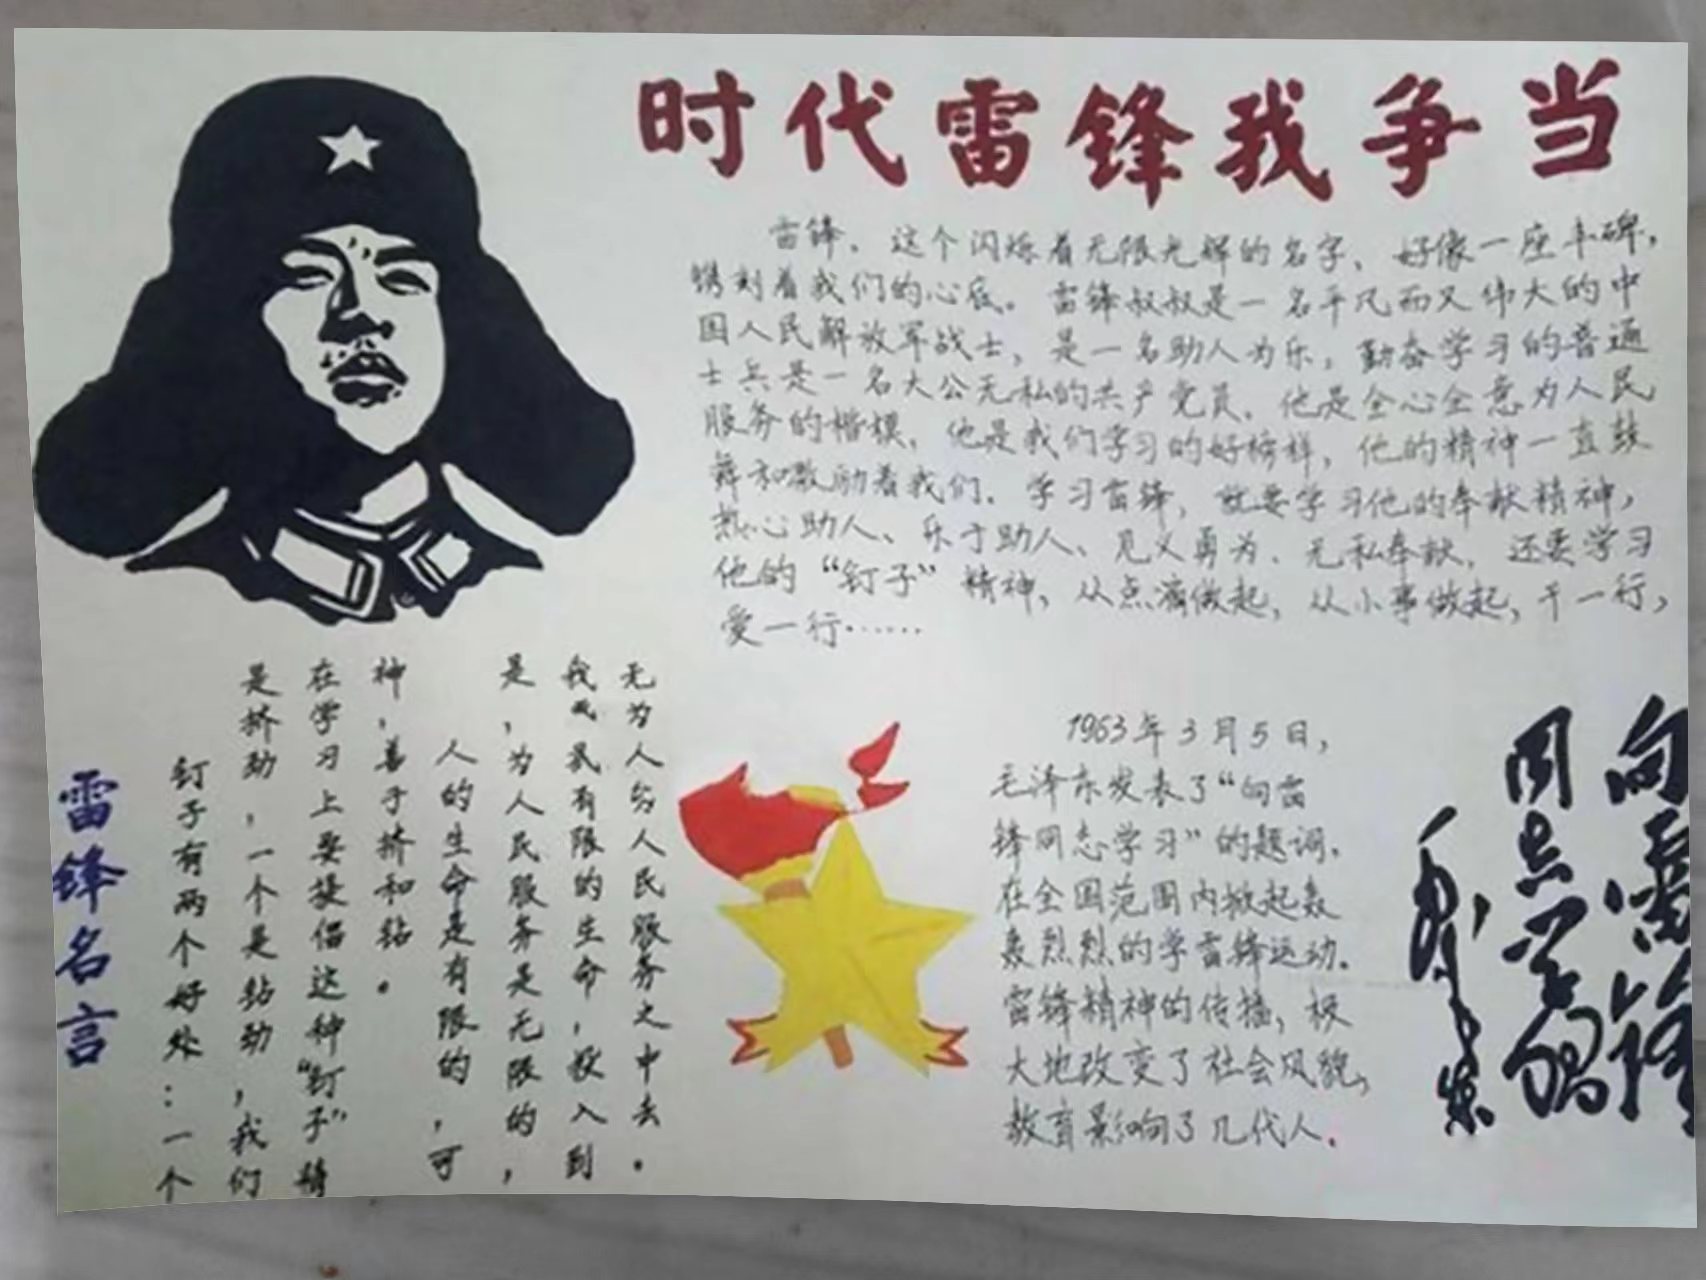 时代雷锋我争当
雷锋，这个闪烁着无限光辉的名字，好像一座丰碑，
镌刻着我们的心底。雷锋叔叔是一名平凡而又伟大的中
国人民解放军战士，是一名助人为乐，勤奋学习的普通
士兵是一名大公无私的共产党员，他是全心全意为人民
服务的楷模，他是我们学习的好榜样，他的精神一直鼓
舞和激励着我们。学习雷锋，就要学习他的奉献精神，
热心助人、乐于助人、见义勇为、无私奉献，还要学习
他的“钉子”精神，从点滴做起，从小事做起，干一行，
爱一行……
雷锋名言
钉子有两个好处：一个
是挤劲，一个是钻劲，我们
在学习上要提倡这种“钉子”精
神，善于挤和钻。
人的生命是有限的，可
是，为人民服务是无限的，
我有限的生命，投入到
无为人人民服务之中去。
1963年3月5日，
毛泽东发表了“向雷
锋同志学习”的题词，
在全国范围内掀起轰
轰烈烈的学雷锋运动。
雷锋精神的传播，极
大地改变了社会风貌，
教育影响了几代人。
向雷锋
同志学习
毛泽东